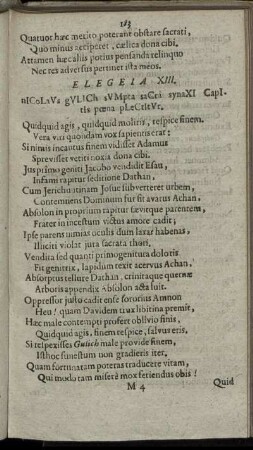 183
Quatuor hæc merito poterant obstare sacrati,
Quo minus acciperet, cælica dona cibi.
Attamen hæc aliis potius pensanda relinquo
Nec res adversus pertinet ista meos.
ELEGEIA XIII.
nICoLaVs gVLICh sVMpta saCra synaXI CapI-
tIs pœna pLeCtItVr.
Quidquid agis, quidquid moliris, respice finem.
Vera viri quondam vox sapientis erat:
Si nimis incautus finem vidisset Adamus
Sprevisset vetiti noxia dona cibi.
Jus primogeniti Jacobo vendidit Esau,
Infami rapitur seditione Dathan,
Cum Jerichuntinam Josue subverteret urbem,
Contemnens Dominum fur fit avarus Achan.
Absolon in proprium rapitur sævitque parentem,
Frater in incestum victus amore cadit;
Ipse parens nimias oculis dum laxat habenas,
Illiciti violat jura sacrata thori.
Vendita sed quanti primogenitura doloris
Fit genitrix, lapidum texit acervus Achan,
Absorptus tellure Dathan, crinitaque quernæ
Arboris appendix Absolon acta luit.
Oppressor justo cadit ense sororius Amnon
Heu! quam Davidem trux libitina premit,
Hæc male contempti profert oblivio finis,
Quidquid agis, finem respice, salvus eris.
Si respexisses Gulich male provide finem,
Isthoc funestum non gradieris iter,
Quam fortunatam poteras traducere vitam,
Qui modo tam miserè mox feriendus obis!
M 4
Quid